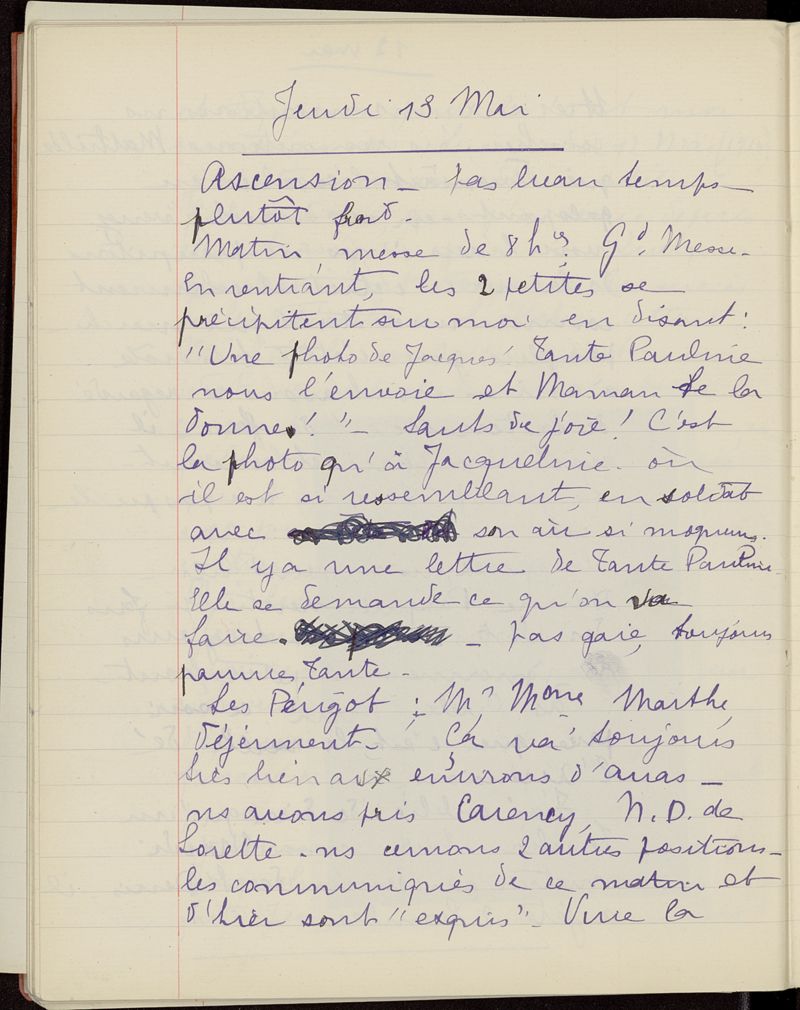 Jeudi 13 Mai
Ascension – pas beau temps –
plutôt froid.
Matin messe de 8 hres. Gd. Messe.
En rentrant, les 2 petites se
précipitent sur moi en disant :
"Une photo de Jacques ! Tante Pauline
nous l'envoie et Maman te la
donne ! " – Sauts de joie ! C'est
la photo qu'a Jacqueline. où
il est si ressemblant, en soldat
avec son air si moqueur.
Il y a une lettre de Tante Pauline.
Elle se demande ce qu'on va
faire. – pas gaie, toujours
pauvre Tante.
Les Périgot : Mr Mme Marthe,
déjeunent. Ça va toujours
très bien aux environs d'Arras –
ns avons pris Carency, N. D. de
Lorette. ns cernons 2 autres positions –
les communiqués de ce matin et
d'hier sont "exquis". Vive la